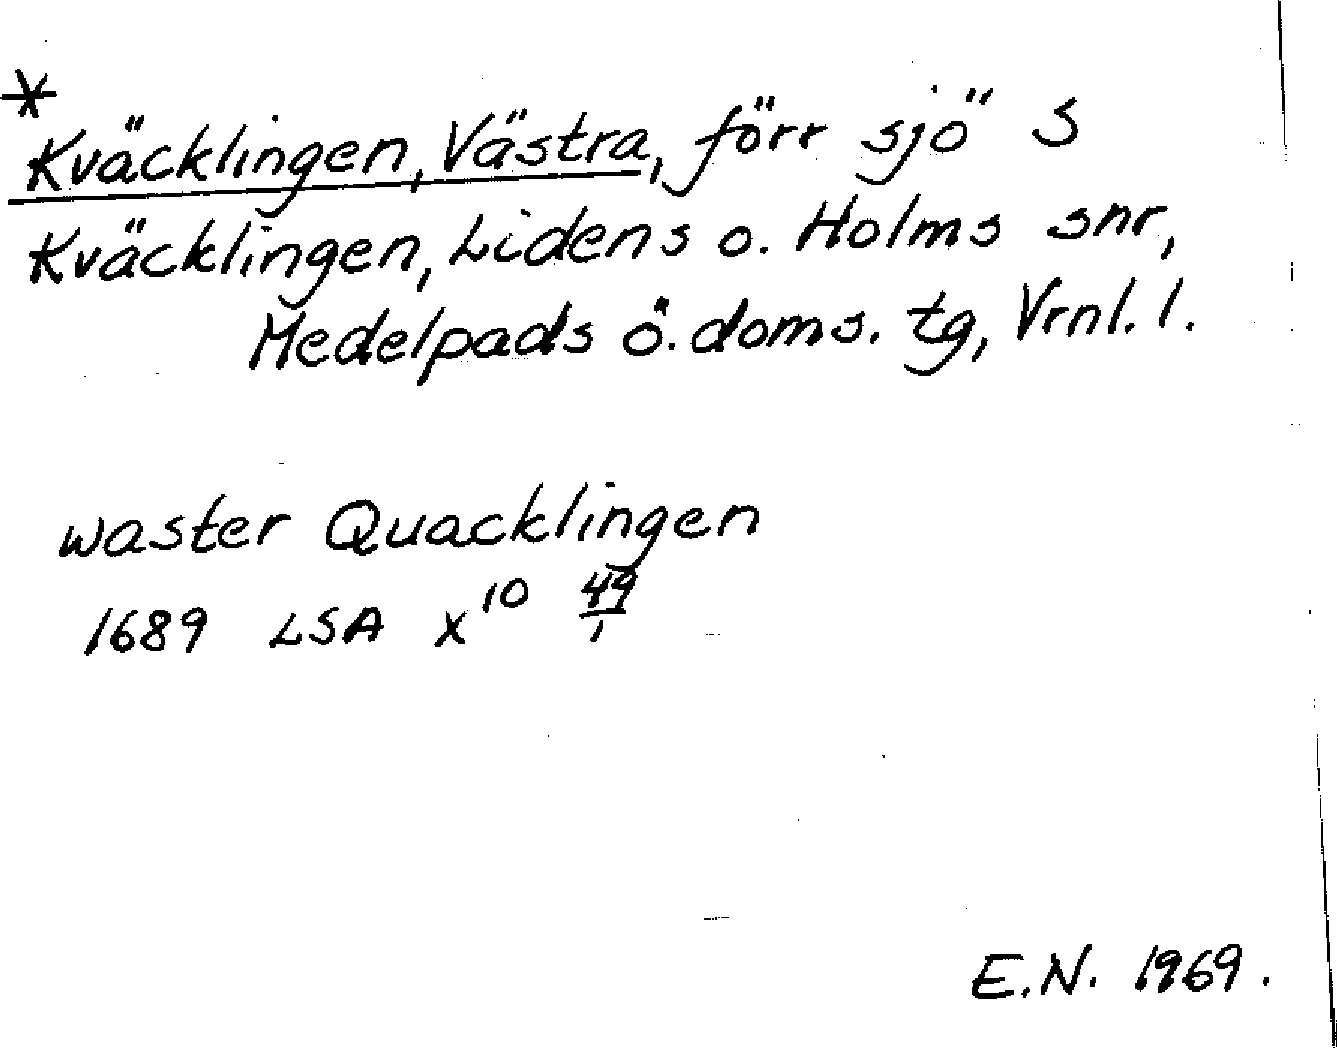 *
Kväcklingen, Västra, förr sjö S
Kväcklingen, Lidens o. Holms snr,
Medelpads ö. doms. tg, Vrnl. l.
waster Quacklingen
1689 LSA X¹⁰ 49/1
E.N. 1969.